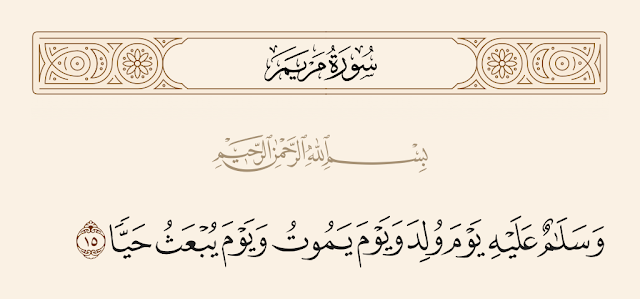 سُورَةُ مَرْيَمَ
بِسْمِ ٱللَّهِ ٱلرَّحْمَٰنِ ٱلرَّحِيمِ
وَسَلَٰمٌ عَلَيْهِ يَوْمَ وُلِدَ وَيَوْمَ يَمُوتُ وَيَوْمَ يُبْعَثُ حَيًّا ١٥